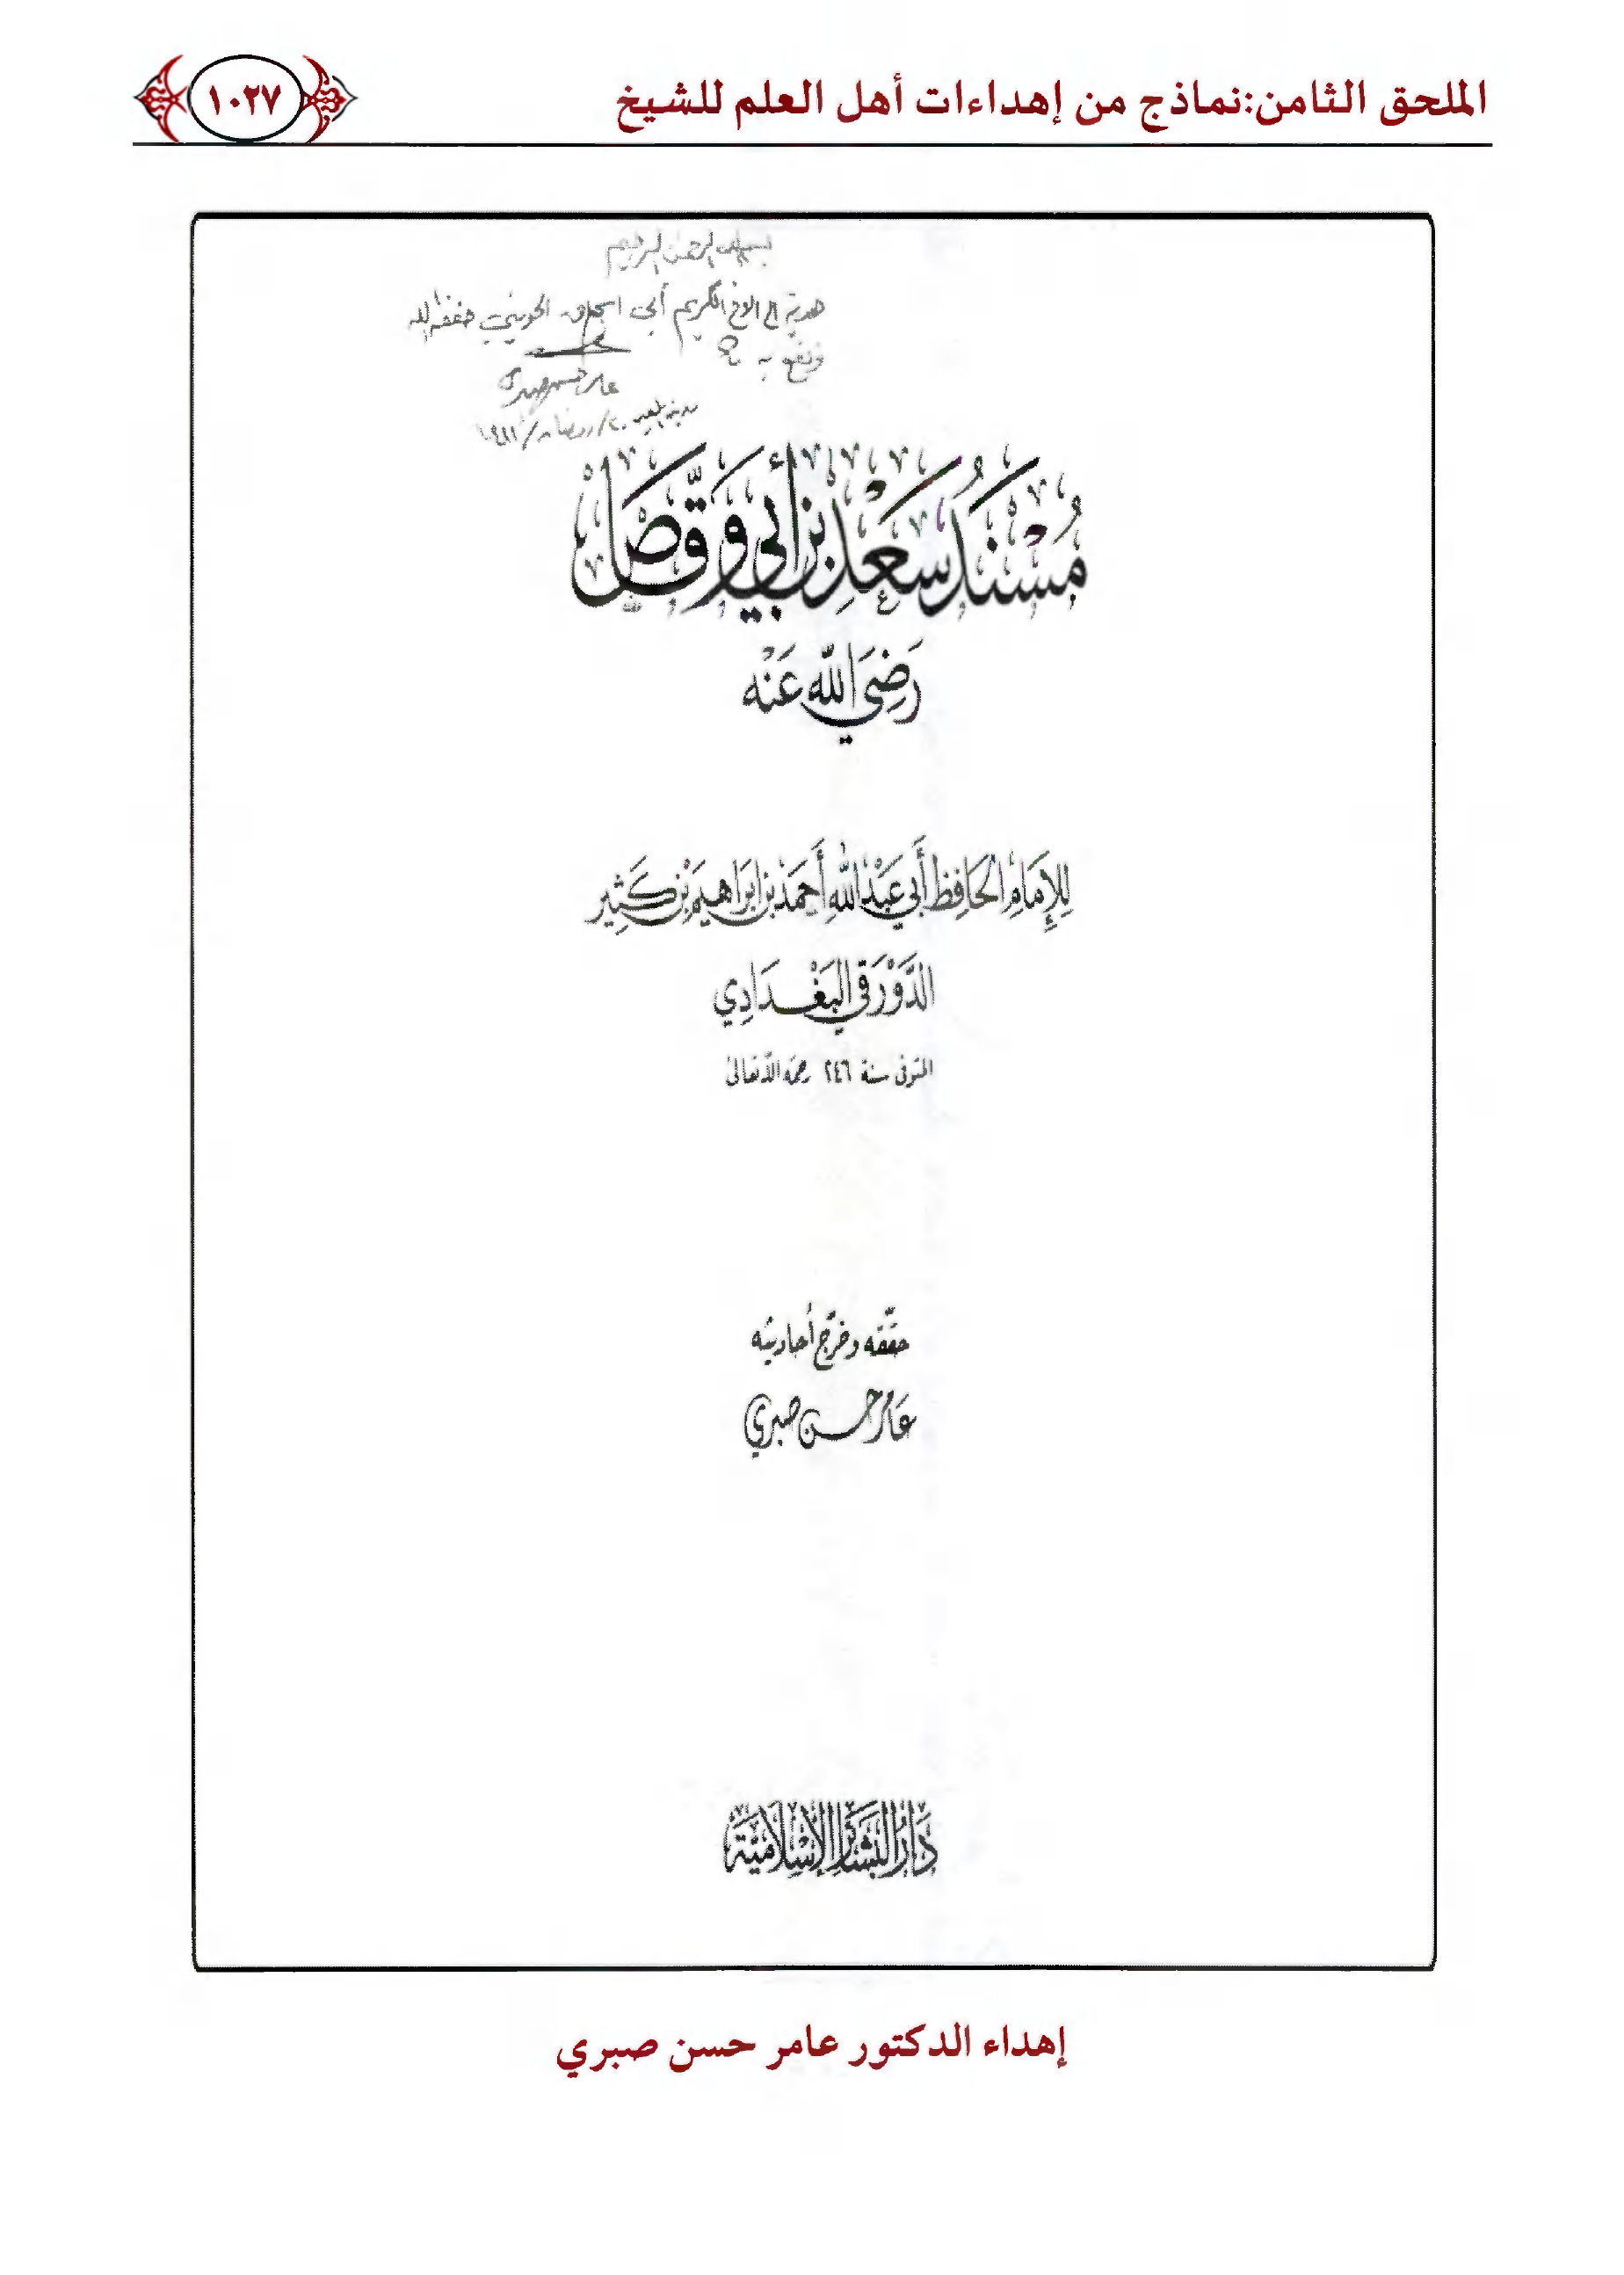 الملحق الثامن:نماذج من إهداءات أهل العلم للشيخ
١٠٢٧
بسم الله الرحمن الرحيم
هدية إلى الأخ الكريم أبي إسحاق الحويني حفظه الله
ونفع به
عامر حسن صبري
مُسْنَدُ سَعْدِ بْنِ أَبِي وَقَّاصٍ
رَضِيَ اللَّهُ عَنْه
لِلإِمَامِ الحَافِظِ أَبِي عَبْدِ اللَّهِ أَحْمَدَ بْنِ إِبْرَاهِيمَ بْنِ كَثِيرٍ
الدَّوْرَقِي البَغْدَادِي
المتوفى سنة ٢٤٦ رحمه الله تعالى
حقّقه وخرّج أحاديثه
عامر حسن صبري
دَارُ البَشَائِرِ الإِسْلَامِيَّة
إهداء الدكتور عامر حسن صبري